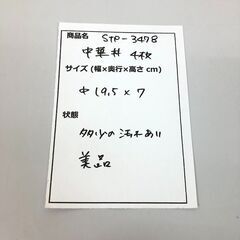 商品名 STP-347B
中華丼 4枚
サイズ (幅×奥行×高さ cm)
φ19.5×7
状態
多少の汚れあり
美品